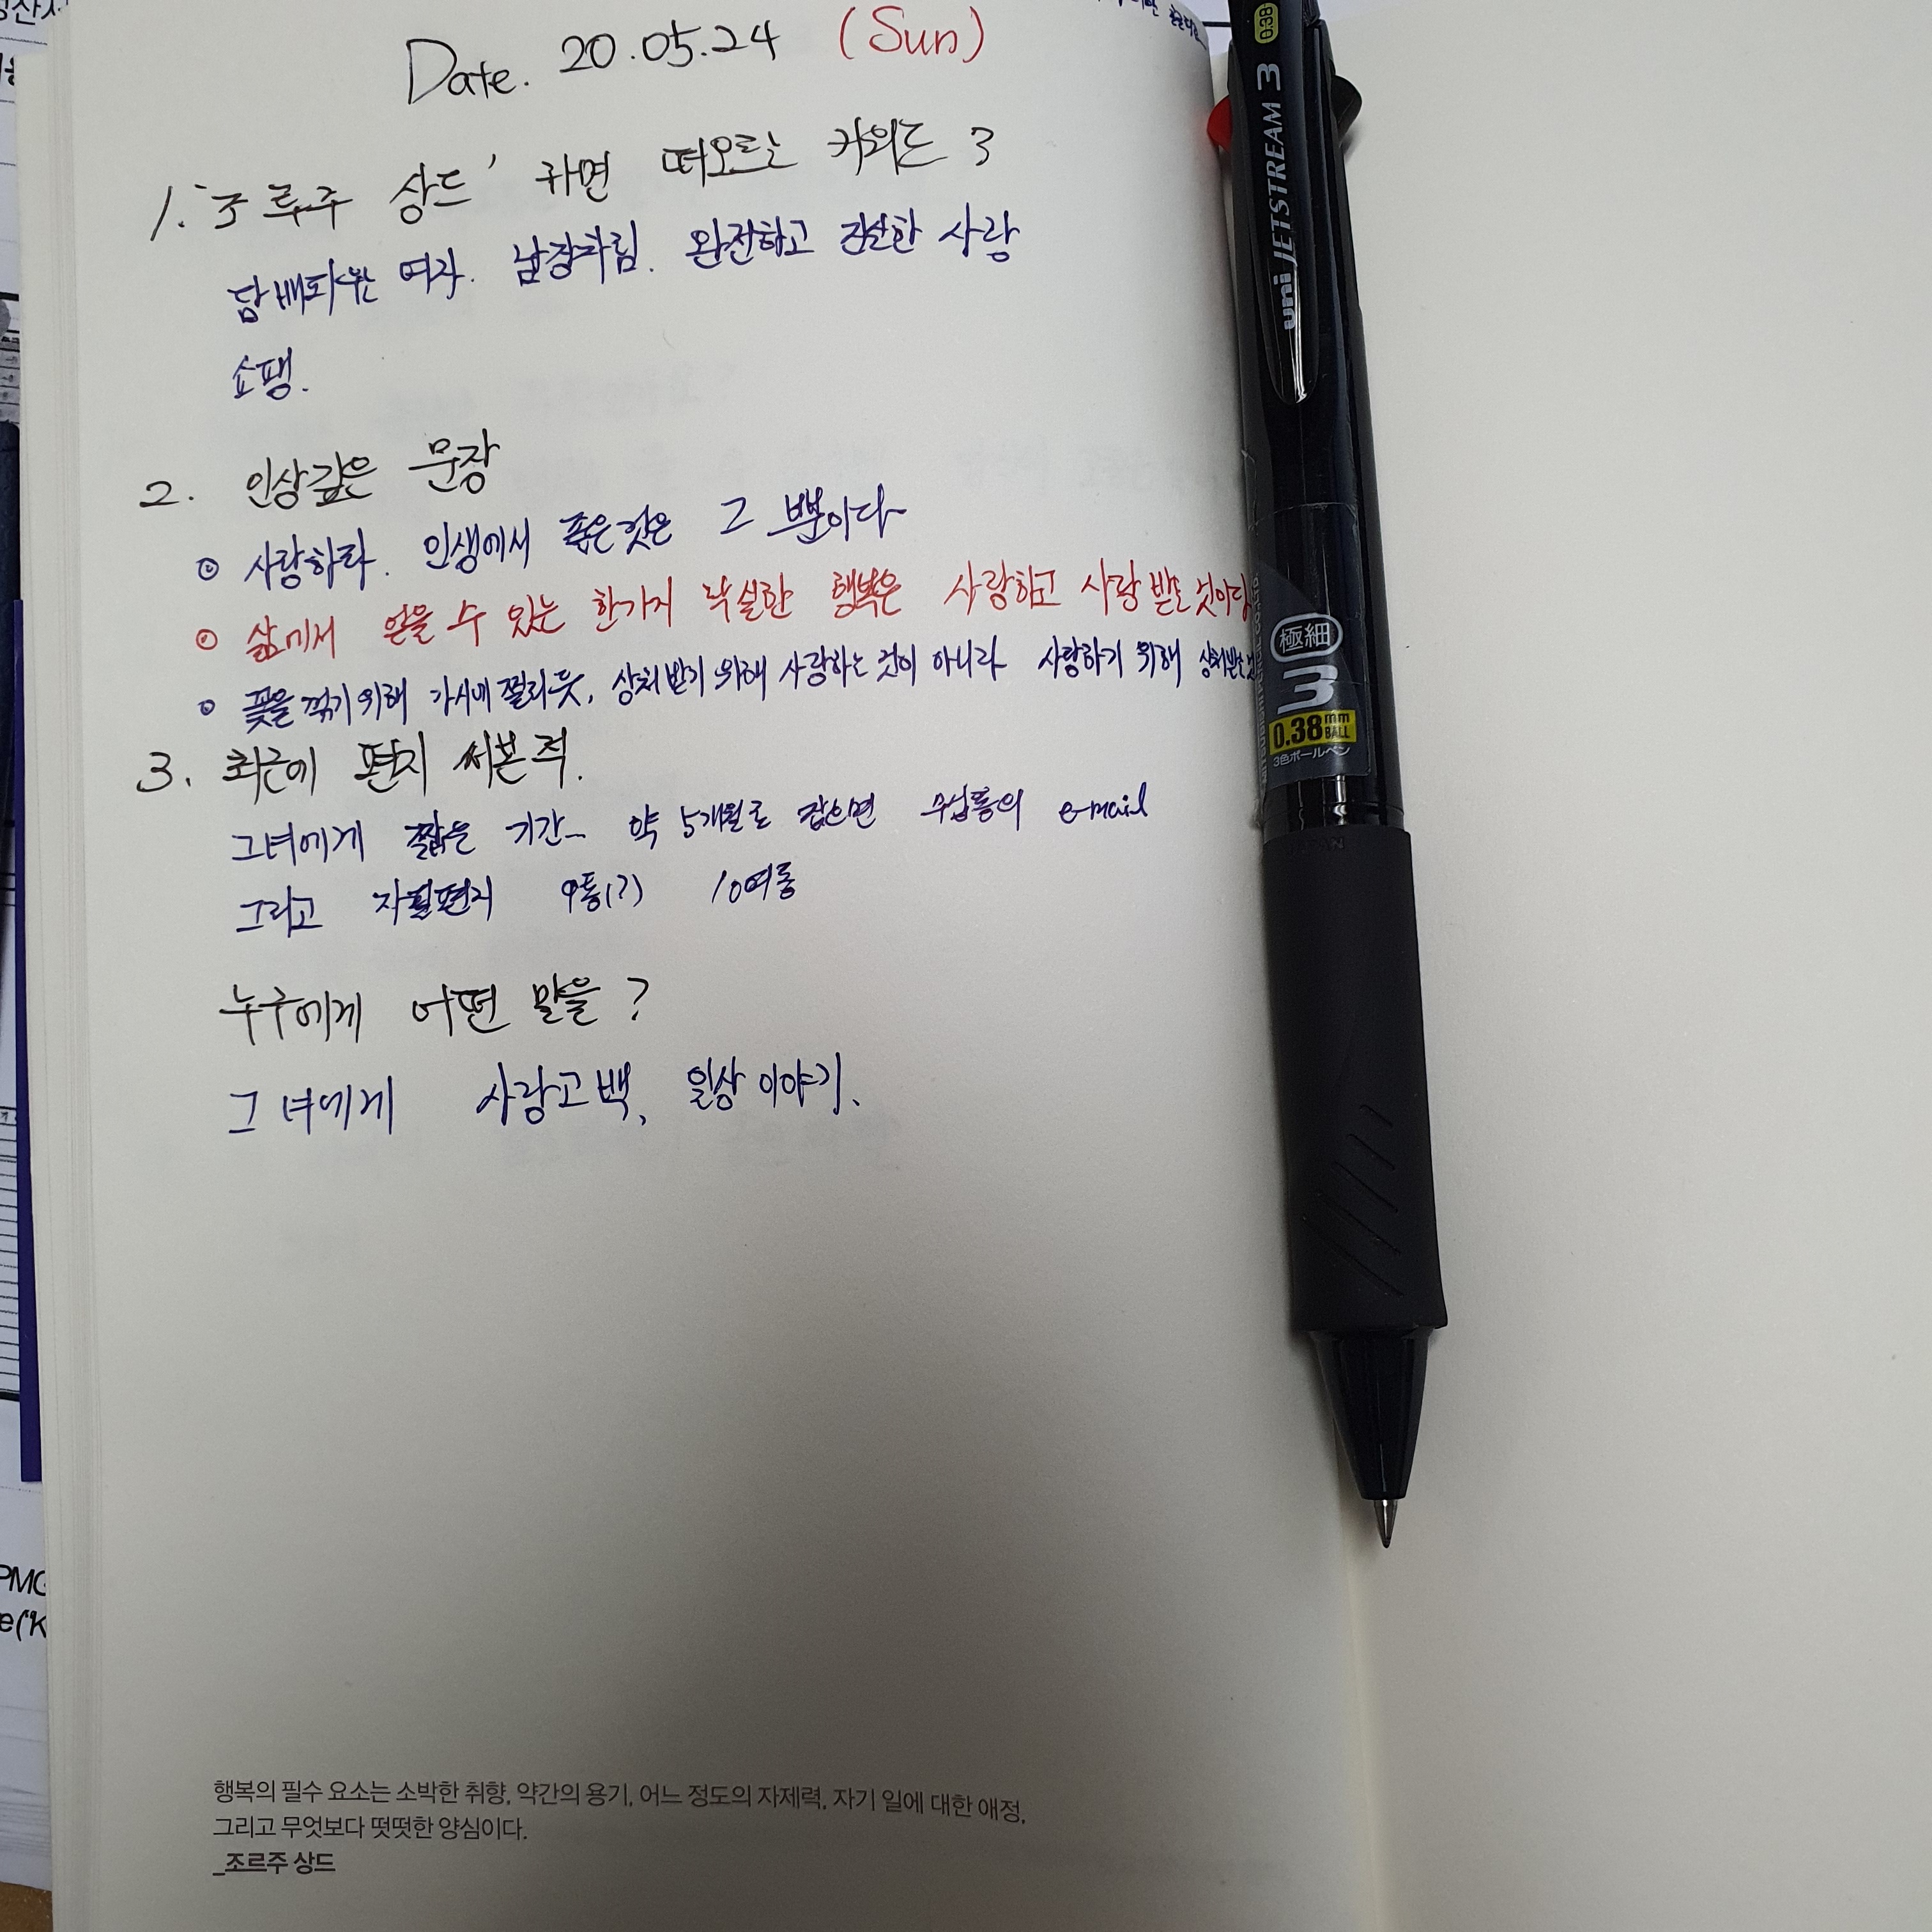 Date. 20.05.24 (Sun)
1. '조르주 상드' 하면 떠오르는 키워드 3
담배피우는 여자. 남장차림. 완전하고 진실한 사랑
쇼팽.
2. 인상깊은 문장
◎ 사랑하라. 인생에서 좋은것은 그 뿐이다
◎ 삶에서 얻을 수 있는 한가지 확실한 행복은 사랑하고 사랑 받는 것이다
◎ 꽃을 꺾기 위해 가시에 찔리듯, 상처받기 위해 사랑하는 것이 아니라 사랑하기 위해 상처받는
3. 최근에 편지 써본 적.
그녀에게 짧은 기간... 약 5개월로 잡으면 수십통의 e-mail
그리고 자필편지 9통(?) 10여통
누구에게 어떤 말을?
그녀에게 사랑고백, 일상 이야기.
행복의 필수 요소는 소박한 취향, 약간의 용기, 어느 정도의 자제력, 자기 일에 대한 애정,
그리고 무엇보다 떳떳한 양심이다.
_조르주 상드
0.38
uni JETSTREAM 3
極細
3
0.38 mm BALL
3色ボールペン
JAPAN
PMG
e('K